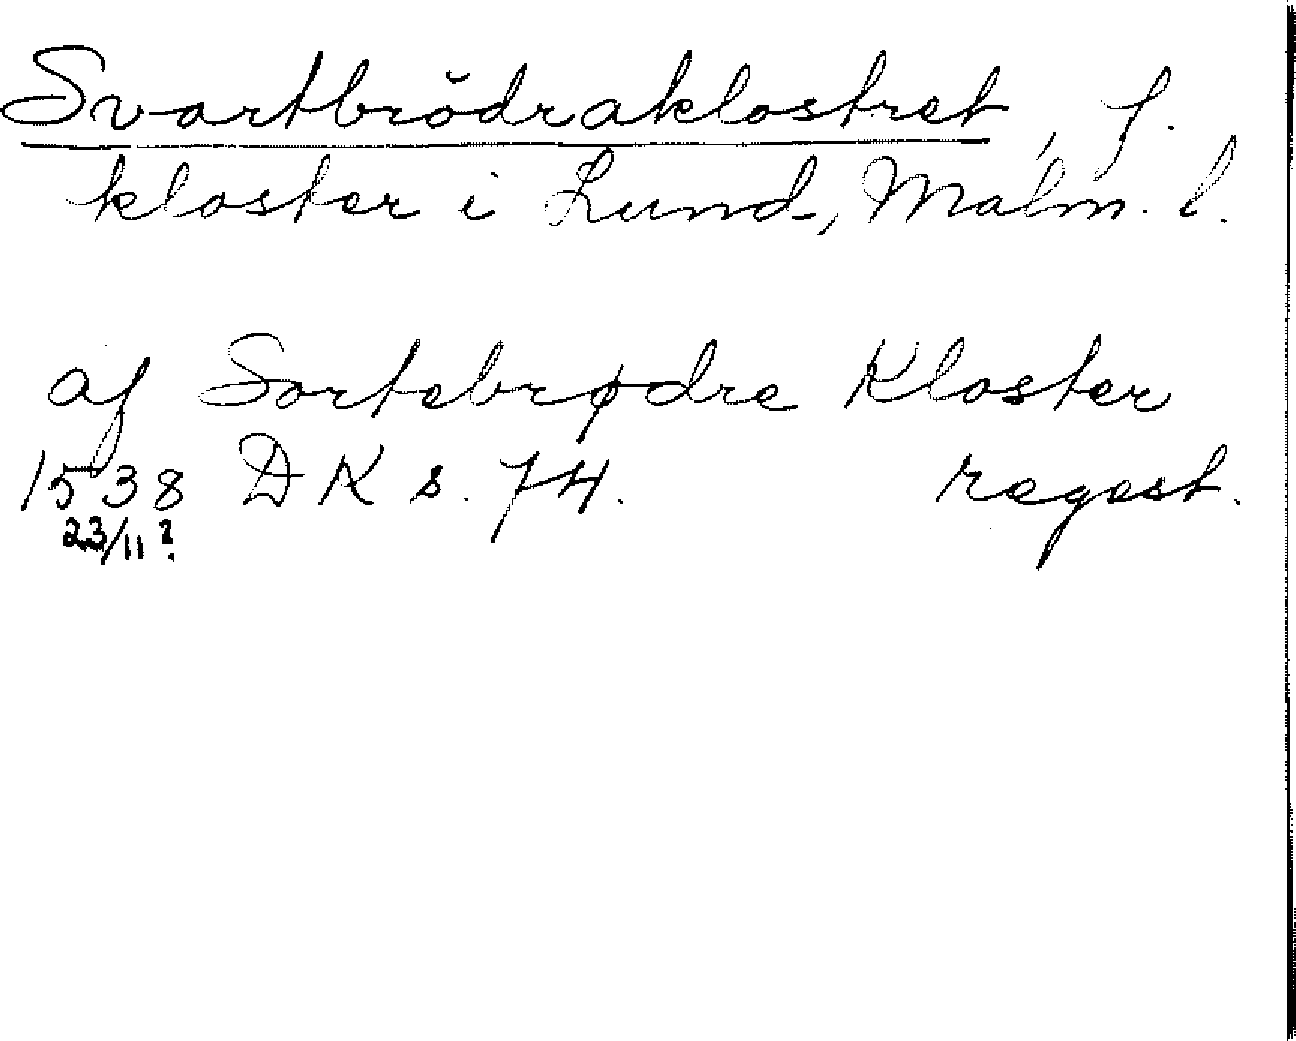 Svartbrödraklostret, f.
kloster i Lund, Malm. l.
af Sortebrødre Kloster
1538 DK s. 74. regest.
23/11?